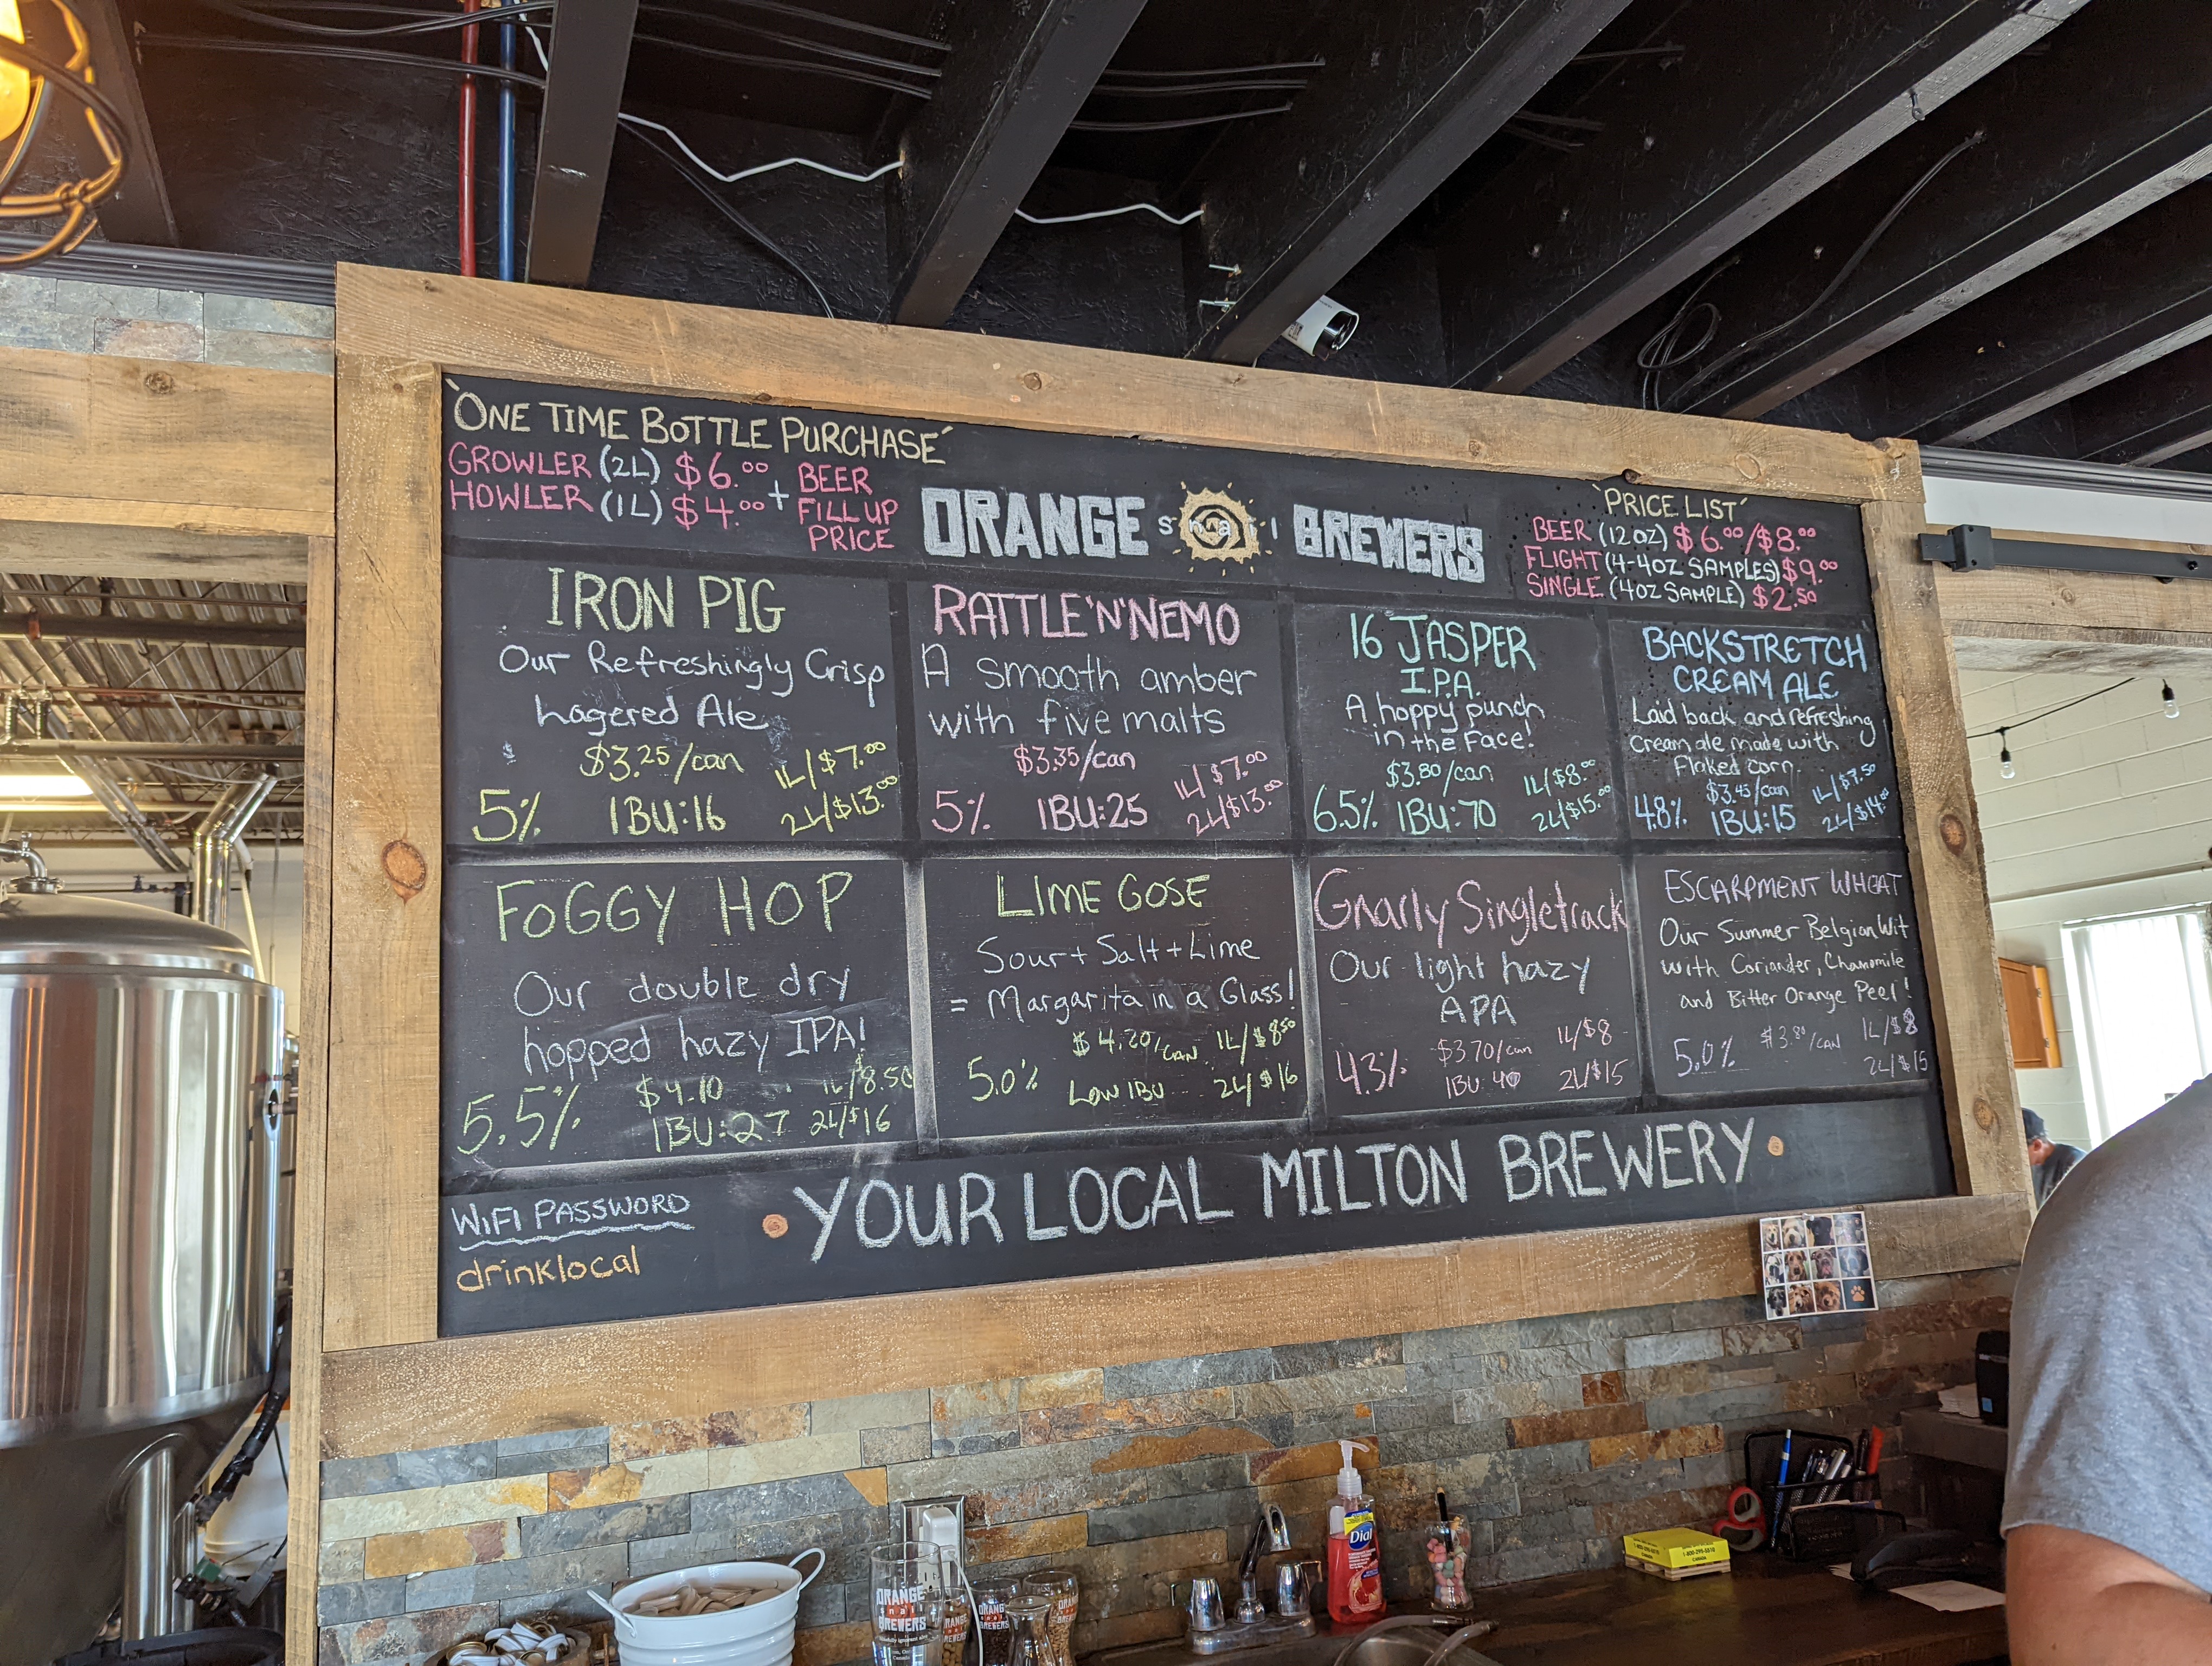 `ONE TIME BOTTLE PURCHASE´
GROWLER (2L) $6.00 + BEER
HOWLER (1L) $4.00 FILL UP
PRICE
ORANGE snail BREWERS
`PRICE LIST´
BEER (12OZ) $6.00/$8.00
FLIGHT (4-4OZ SAMPLES) $9.00
SINGLE (4OZ SAMPLE) $2.50
IRON PIG
Our Refreshingly Crisp
Lagered Ale
$3.25/can 1L/$7.00
5% IBU:16 2L/$13.00
RATTLE'N'NEMO
A smooth amber
with five malts
$3.35/can 1L/$7.00
5% IBU:25 2L/$13.00
16 JASPER
I.P.A.
A hoppy punch
in the Face!
$3.80/can 1L/$8.00
6.5% IBU:70 2L/$15.00
BACKSTRETCH
CREAM ALE
Laid back and refreshing
Cream ale made with
Flaked corn.
$3.45/can 1L/$7.50
4.8% IBU:15 2L/$14.00
FOGGY HOP
Our double dry
hopped hazy IPA!
5.5% $4.10 1L/$8.50
IBU:27 2L/$16
LIME GOSE
Sour + Salt + Lime
= Margarita in a Glass!
$4.20/CAN 1L/$8.50
5.0% LOW IBU 2L/$16
Gnarly Singletrack
Our light hazy
APA
4.3% $3.70/can 1L/$8
IBU: 40 2L/$15
ESCARPMENT WHEAT
Our Summer Belgian Wit
with Coriander, Chamomile
and Bitter Orange Peel!
5.0% $3.80/CAN 1L/$8
2L/$15
WIFI PASSWORD
drinklocal
• YOUR LOCAL MILTON BREWERY •
Dial
ORANGE
snail
BREWERS